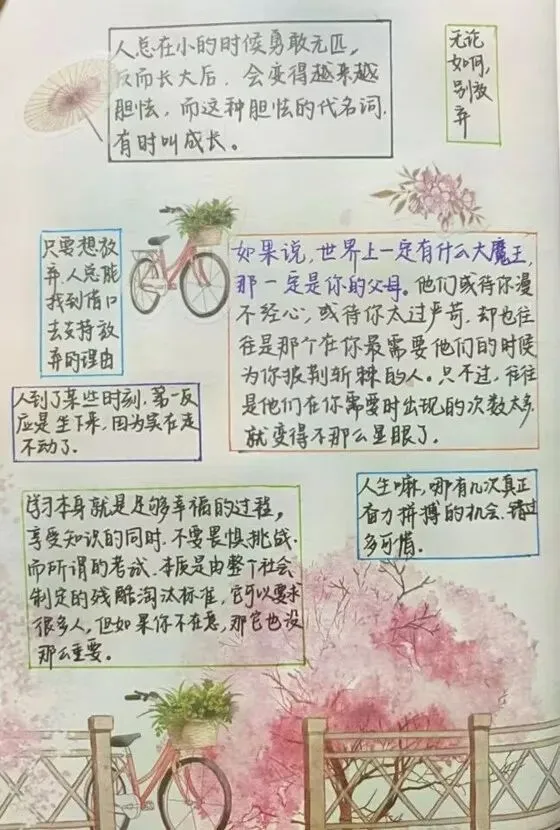 人总在小的时候勇敢无匹,
反而长大后.会变得越来越
胆怯,而这种胆怯的代名词.
有时叫成长。
无论
如何,
别放
弃
只要想放
弃.人总能
找到借口
去支持放
弃的理由
如果说,世界上一定有什么大魔王,
那一定是你的父母。他们或待你漫
不经心,或待你太过严苛.却也往
往是那个在你最需要他们的时候
为你披荆斩棘的人。只不过,往往
是他们在你需要时出现的次数太多,
就变得不那么显眼了。
人到了某些时刻,第一反
应是坐下来,因为实在走
不动了.
学习本身就是足够幸福的过程,
享受知识的同时.不要畏惧挑战.
而所谓的考试.本质是由整个社会
制定的残酷淘汰标准,它可以要求
很多人,但如果你不在意,那它也没
那么重要。
人生嘛,哪有几次真正
奋力拼搏的机会.错过
多可惜.